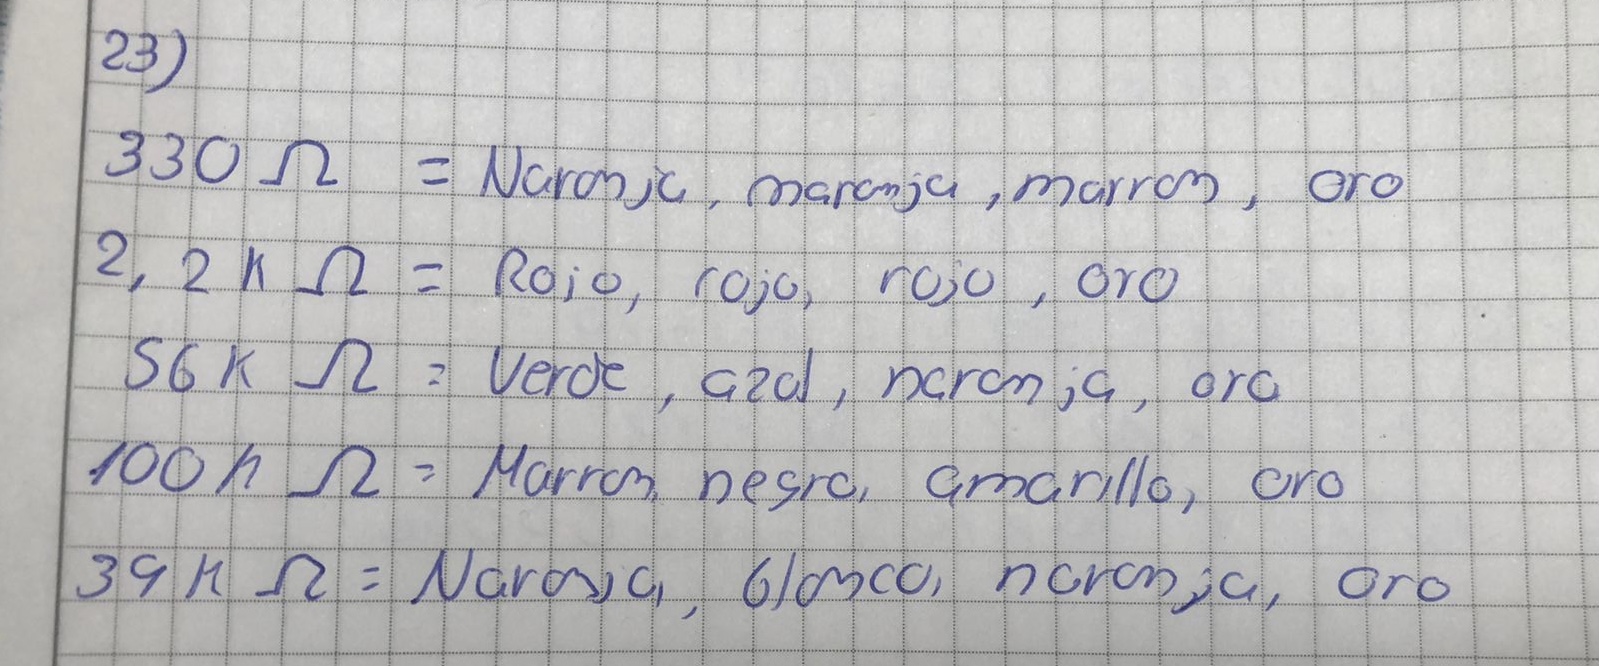 23)
330 Ω = Naranja, naranja, marron, oro
2,2K Ω = Rojo, rojo, rojo, oro
56K Ω = Verde, azul, naranja, oro
100K Ω = Marron, negro, amarillo, oro
39K Ω = Naranja, blanco, naranja, oro